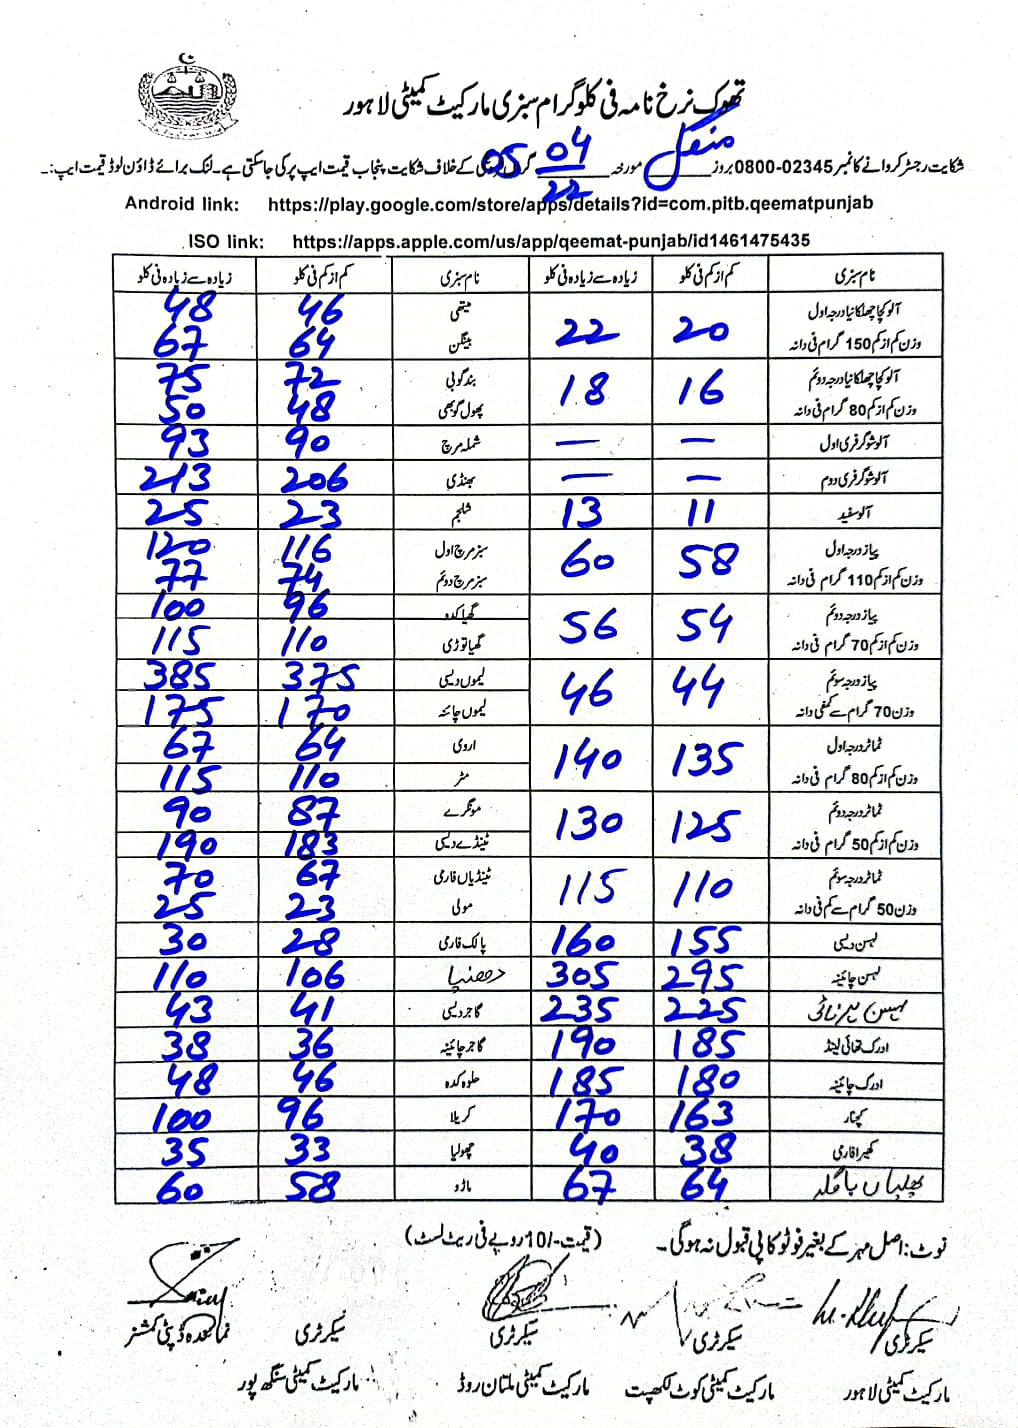 تھوک نرخ نامہ فی کلوگرام سبزی مارکیٹ کمیٹی لاہور
شکایت رجسٹر کروانے کا نمبر 02345-0800 بروز منگل مورخہ 05 04 22 گراں فروشی کے خلاف شکایت پنجاب قیمت ایپ پر کی جا سکتی ہے۔ لنک برائے ڈاؤن لوڈ قیمت ایپ:۔
Android link: https://play.google.com/store/apps/details?id=com.pitb.qeematpunjab
ISO link: https://apps.apple.com/us/app/qeemat-punjab/id1461475435
نام سبزی کم از کم فی کلو زیادہ سے زیادہ فی کلو نام سبزی کم از کم فی کلو زیادہ سے زیادہ فی کلو
آلو کچا چھلکا نیا درجہ اول 20 22 میتھی 46 48
وزن کم از کم 150 گرام فی دانہ بینگن 64 67
آلو کچا چھلکا نیا درجہ دوئم 16 18 بند گوبی 72 75
وزن کم از کم 80 گرام فی دانہ پھول گوبھی 48 50
آلو شوگر فری اول — — شملہ مرچ 90 93
آلو شوگر فری دوم — — بھنڈی 206 213
آلو سفید 11 13 شلجم 23 25
پیاز درجہ اول 58 60 سبز مرچ اول 116 120
وزن کم از کم 110 گرام فی دانہ سبز مرچ دوئم 74 77
پیاز درجہ دوئم 54 56 گھیا کدو 96 100
وزن کم از کم 70 گرام فی دانہ گھیا توڑی 110 115
پیاز درجہ سوئم 44 46 لیموں دیسی 375 385
وزن 70 گرام سے کم فی دانہ لیموں چائنہ 170 175
ٹماٹر درجہ اول 135 140 اروی 64 67
وزن کم از کم 80 گرام فی دانہ مٹر 110 115
ٹماٹر درجہ دوئم 125 130 مونگرے 87 90
وزن کم از کم 50 گرام فی دانہ ٹینڈے دیسی 183 190
ٹماٹر درجہ سوئم 110 115 ٹینڈیاں فارمی 67 70
وزن 50 گرام سے کم فی دانہ مولی 23 25
لہسن دیسی 155 160 پالک فارمی 28 30
لہسن چائینہ 295 305 دھنیا 106 110
لہسن 225 235 گاجر دیسی 41 43
ادرک تھائی لینڈ 185 190 گاجر چائینہ 36 38
ادرک چائینہ 180 185 حلوہ کدہ 46 48
کچنار 163 170 کریلا 96 100
کھیرا فارمی 38 40 چھولیا 33 35
پھلیاں 64 67 ماڑو 58 60
نوٹ: اصل مہر کے بغیر فوٹو کاپی قبول نہ ہوگی۔ (قیمت -/10 روپے فی ریٹ لسٹ)
سیکرٹری سیکرٹری سیکرٹری سیکرٹری نمائندہ ڈپٹی کمشنر
مارکیٹ کمیٹی لاہور مارکیٹ کمیٹی کوٹ لکھپت مارکیٹ کمیٹی ملتان روڈ مارکیٹ کمیٹی سنگھ پور